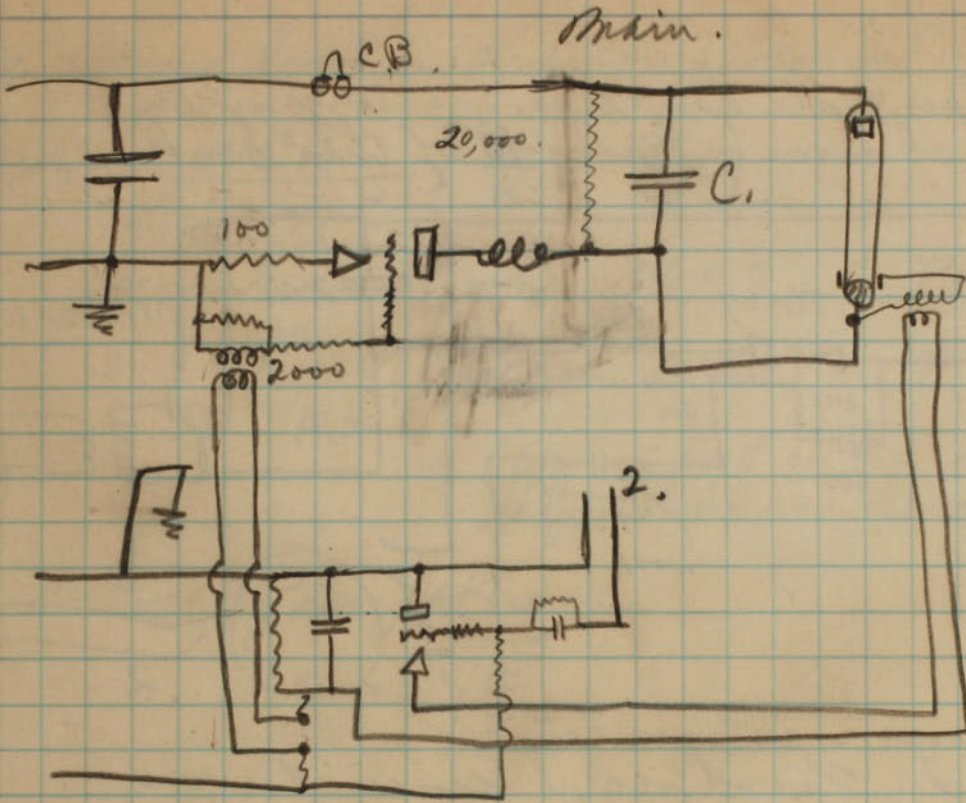 Main.
C.B.
20,000.
C.
100
2000
2.